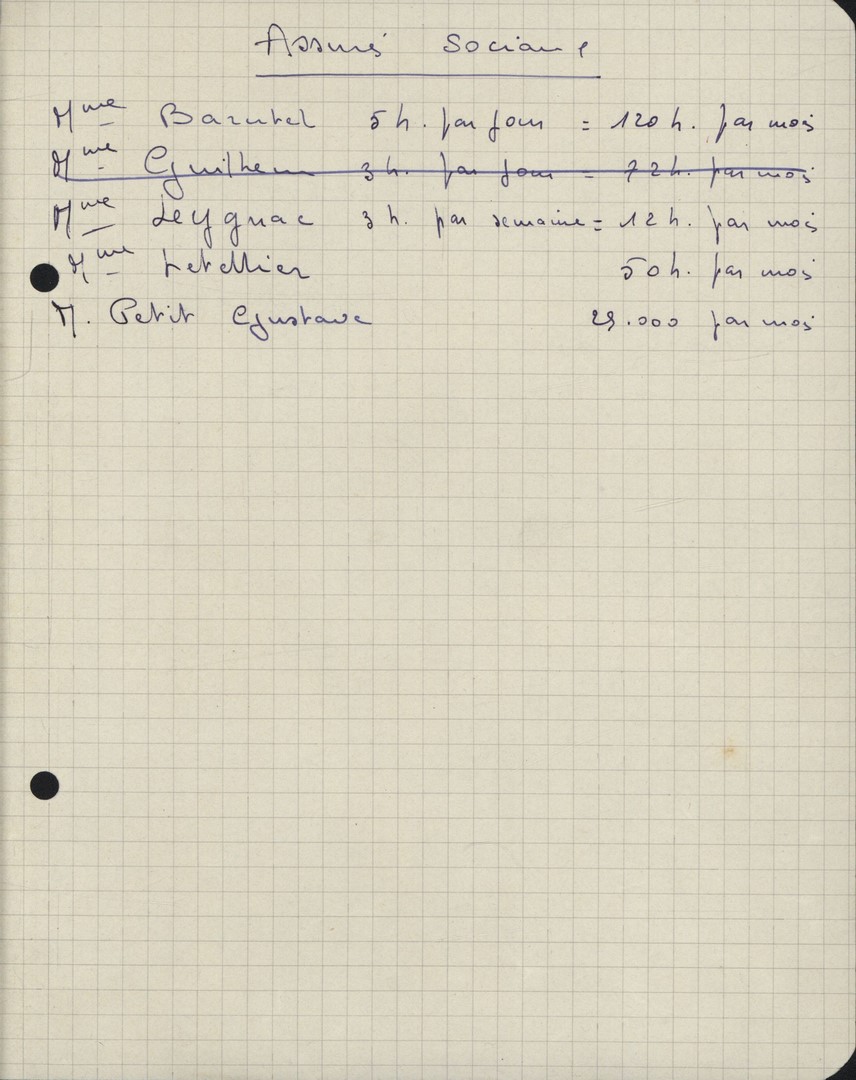 Assurés Sociaux
Mme Bazutel 5 h. par jour = 120 h. par mois
Mme Guilhem 3 h. par jour = 72 h. par mois
Mme Leygnac 3 h. par semaine = 12 h. par mois
Mme Letellier 50 h. par mois
M. Petit Gustave 29.000 par mois